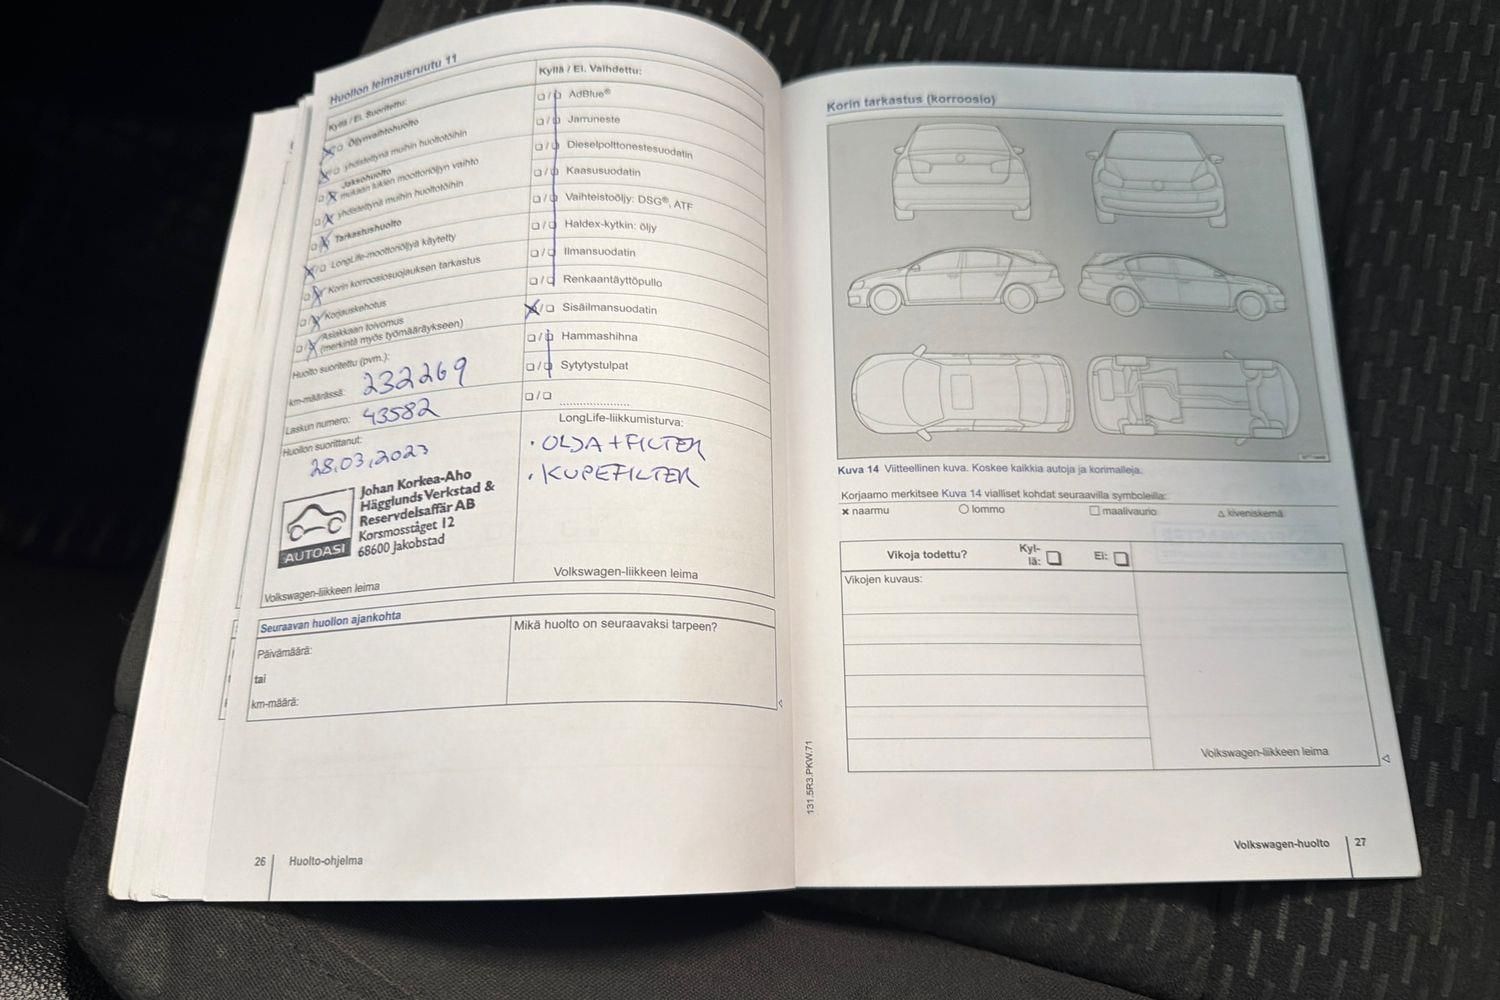 Huollon leimausruutu 11
Kyllä / Ei. Suoritettu:
Öljynvaihtohuolto
yhdistettynä muihin huoltotöihin
Jaksohuolto
mukaan lukien moottoriöljyn vaihto
yhdistettynä muihin huoltotöihin
Tarkastushuolto
LongLife-moottoriöljyä käytetty
Korin korroosiosuojauksen tarkastus
Korjauskehotus
Asiakkaan toivomus
(merkintä myös työmääräykseen)
Huolto suoritettu (pvm.):
km-määrässä: 232269
Laskun numero: 43582
Huollon suorittanut:
28.03.2023
AUTOASI
Johan Korkea-Aho
Hägglunds Verkstad &
Reservdelsaffär AB
Korsmosståget 12
68600 Jakobstad
Volkswagen-liikkeen leima
Kyllä / Ei. Vaihdettu:
AdBlue®
Jarruneste
Dieselpolttonestesuodatin
Kaasusuodatin
Vaihteistoöljy: DSG®, ATF
Haldex-kytkin: öljy
Ilmansuodatin
Renkaantäyttöpullo
Sisäilmansuodatin
Hammashihna
Sytytystulpat
LongLife-liikkumisturva:
• OLJA + FILTER
• KUPEFILTER
Volkswagen-liikkeen leima
Seuraavan huollon ajankohta
Päivämäärä:
tai
km-määrä:
Mikä huolto on seuraavaksi tarpeen?
26 Huolto-ohjelma
Korin tarkastus (korroosio)
Kuva 14 Viitteellinen kuva. Koskee kaikkia autoja ja korimalleja.
Korjaamo merkitsee Kuva 14 vialliset kohdat seuraavilla symboleilla:
× naarmu ○ lommo □ maalivaurio △ kiveniskemä
Vikoja todettu? Kyl-
lä: Ei:
Vikojen kuvaus:
Volkswagen-liikkeen leima
131.5R3.PKW.71
Volkswagen-huolto 27